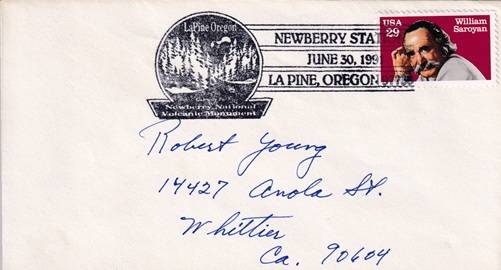 LaPine Oregon
Gateway To
Newberry National
Volcanic Monument
NEWBERRY STA
JUNE 30, 199
LA PINE, OREGON
USA
29
William
Saroyan
Robert Young
14427 Anola St.
Whittier
Ca. 90604